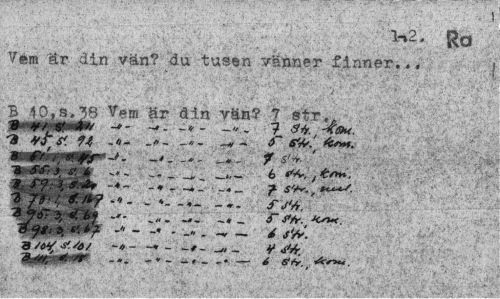 1-2. Ra
Vem är din vän? du tusen vänner finner...
B 40,s.38 Vem är din vän? 7 str.
B 41, s. 24 -"- -"- -"- -"- 7 str., kom.
B 45, s. 92 -"- -"- -"- -"- 5 str., kom.
s. 45 -"- -"- -"- -"- 7 str.
B 55:3, s. 6 -"- -"- -"- -"- 6 str., kom.
B 59:3, s. -"- -"- -"- -"- 7 str.,
B 70:1, s. 167 -"- -"- -"- -"- 5 str.
B 95:3, s. 69 -"- -"- -"- -"- 5 str. kom.
B 98:3, s. 67 -"- -"- -"- -"- 6 str.
B 104, s. 101 -"- -"- -"- -"- 4 str.
B 111, s. 18 -"- -"- -"- -"- 6 str., kom.